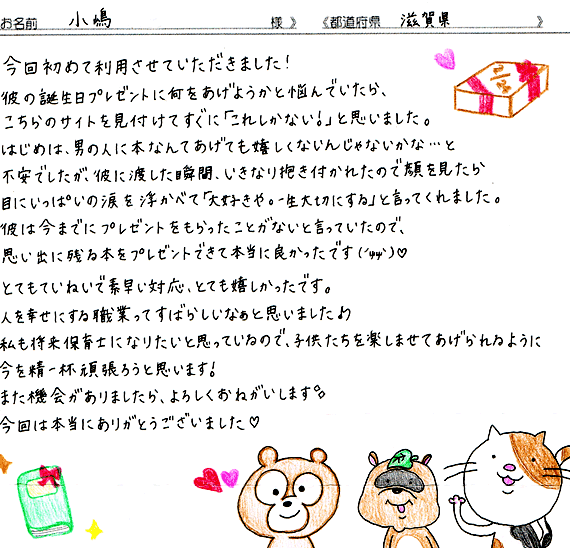 お名前 小嶋 様 》 《都道府県 滋賀県 》
今回初めて利用させていただきました！
彼の誕生日プレゼントに何をあげようかと悩んでいたら、
こちらのサイトを見付けてすぐに「これしかない！」と思いました。
はじめは、男の人に本なんてあげても嬉しくないんじゃないかな…と
不安でしたが、彼に渡した瞬間、いきなり抱き付かれたので顔を見たら
目にいっぱいの涙を浮かべて「大好きや。一生大切にする」と言ってくれました。
彼は今までにプレゼントをもらったことがないと言っていたので、
思い出に残る本をプレゼントできて本当に良かったです(´ψψ`)♡
とてもていねいで素早い対応、とても嬉しかったです。
人を幸せにする職業ってすばらしいなぁと思いました♪
私も将来保育士になりたいと思っているので、子供たちを楽しませてあげられるように
今を精一杯頑張ろうと思います！
また機会がありましたら、よろしくおねがいします
今回は本当にありがとうございました♡